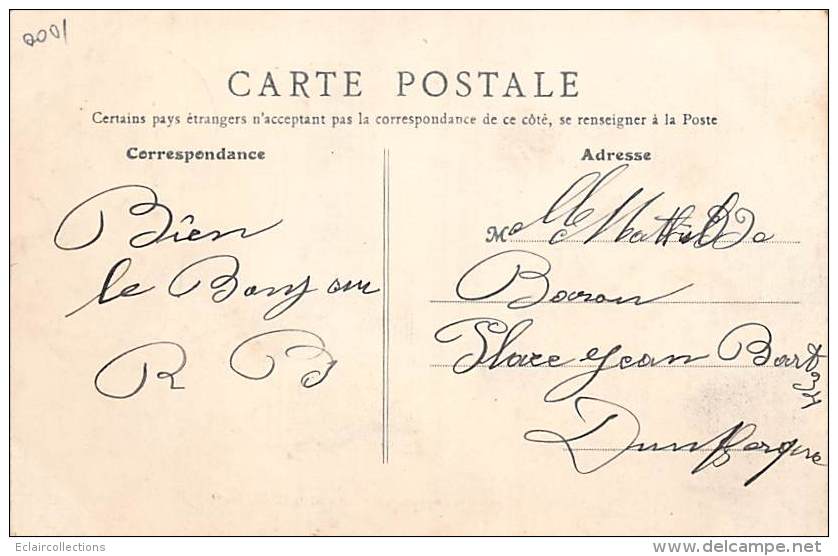 2001
CARTE POSTALE
Certains pays étrangers n'acceptant pas la correspondance de ce côté, se renseigner à la Poste
Correspondance
Bien
le Bonjour
R B
Adresse
M Mlle Mathilde
Boron
Place Jean Bart
Dunkerque
Eclaircollections
delcampe.net